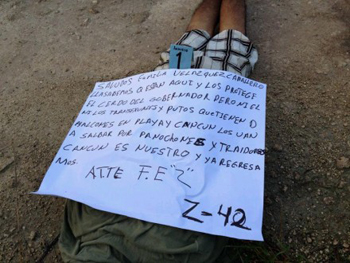 1
SALUDOS FAMILIA VELAZQUEZ CABALLERO
YA SABEMOS Q ESTAN AQUI Y LOS PROTEGE
EL CERDO DEL GOBERNADOR PERO NI EL
NI LOS TRANSEUNTES Y PUTOS QUE TIENEN D
MALCONES EN PLAYA Y CANCUN LOS VAN
A SALBAR POR PANOCHONES Y TRAIDORES
CANCUN ES NUESTRO Y YA REGRESA
MOS.
ATTE F.E "Z"
Z-42